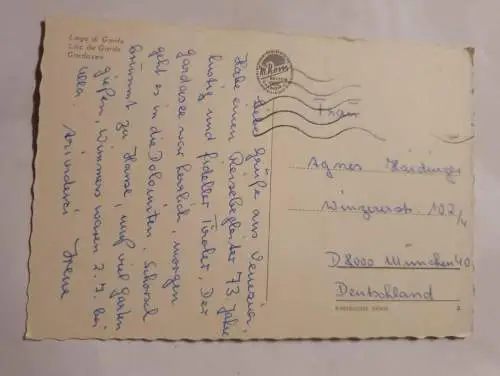 Lago di Garda
Lac de Garde
Gardasee
Liebe Grüße aus Venezia,
Habe einen Reisebegleiter 73 Jahre
lustig und fideler Tiroler. Der
Gardasee war herrlich, morgen
geht es in die Dolomiten. Schorsch
brummt zu Hause, muß viel Garten
gießen, waren 2. 7. bei
Arrivederci Irene
Frau
Agnes Haidinger
Winzererstr. 102/4
D 8000 München 40
Deutschland